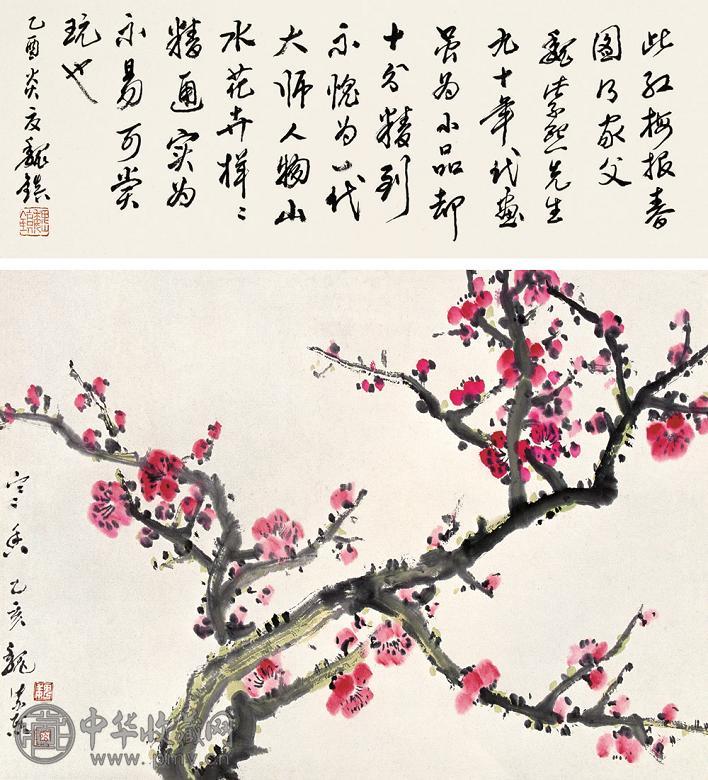 此红梅报春
图乃家父
魏紫熙先生
九十年代画
虽为小品却
十分精到
不愧为一代
大师人物山
水花卉样〻
精通实为
不易可赏
玩也
乙酉炎夏魏镇
寒香
乙亥
魏紫熙
中华收藏网